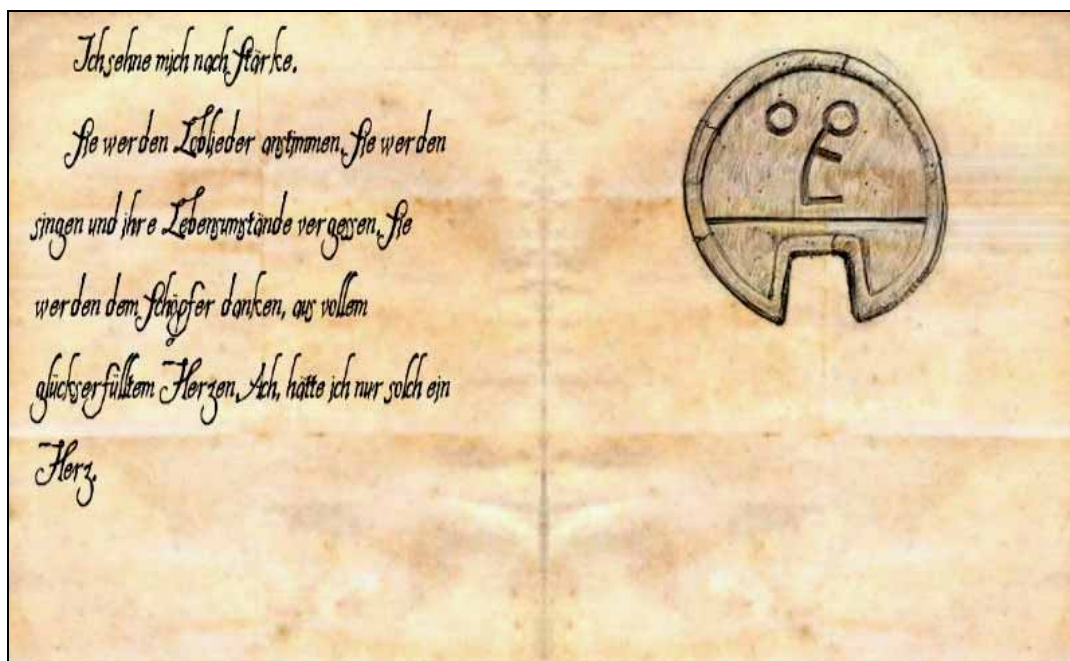 Ich sehne mich nach Stärke.
Sie werden Loblieder anstimmen. Sie werden
singen und ihre Lebensumstände vergessen. Sie
werden dem Schöpfer danken, aus vollem
glückserfülltem Herzen. Ach, hätte ich nur solch ein
Herz.